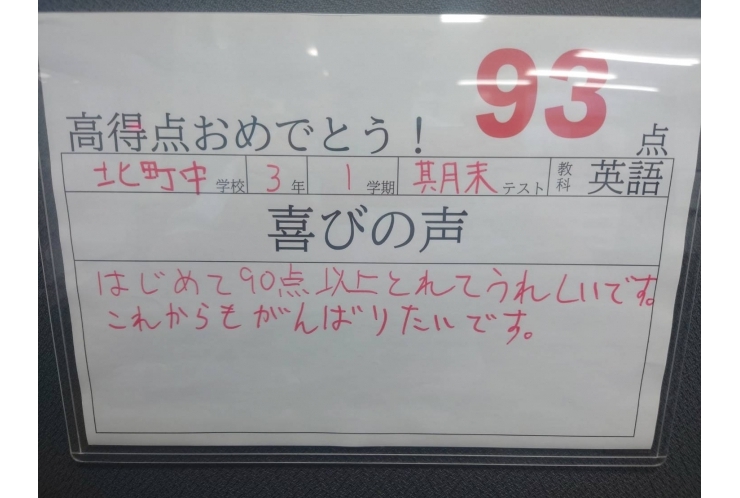 93
高得点おめでとう！ 点
北町中 学校 3 年 1 学期 期月末 テスト 教科 英語
喜びの声
はじめて90点以上とれてうれしいです。
これからもがんばりたいです。